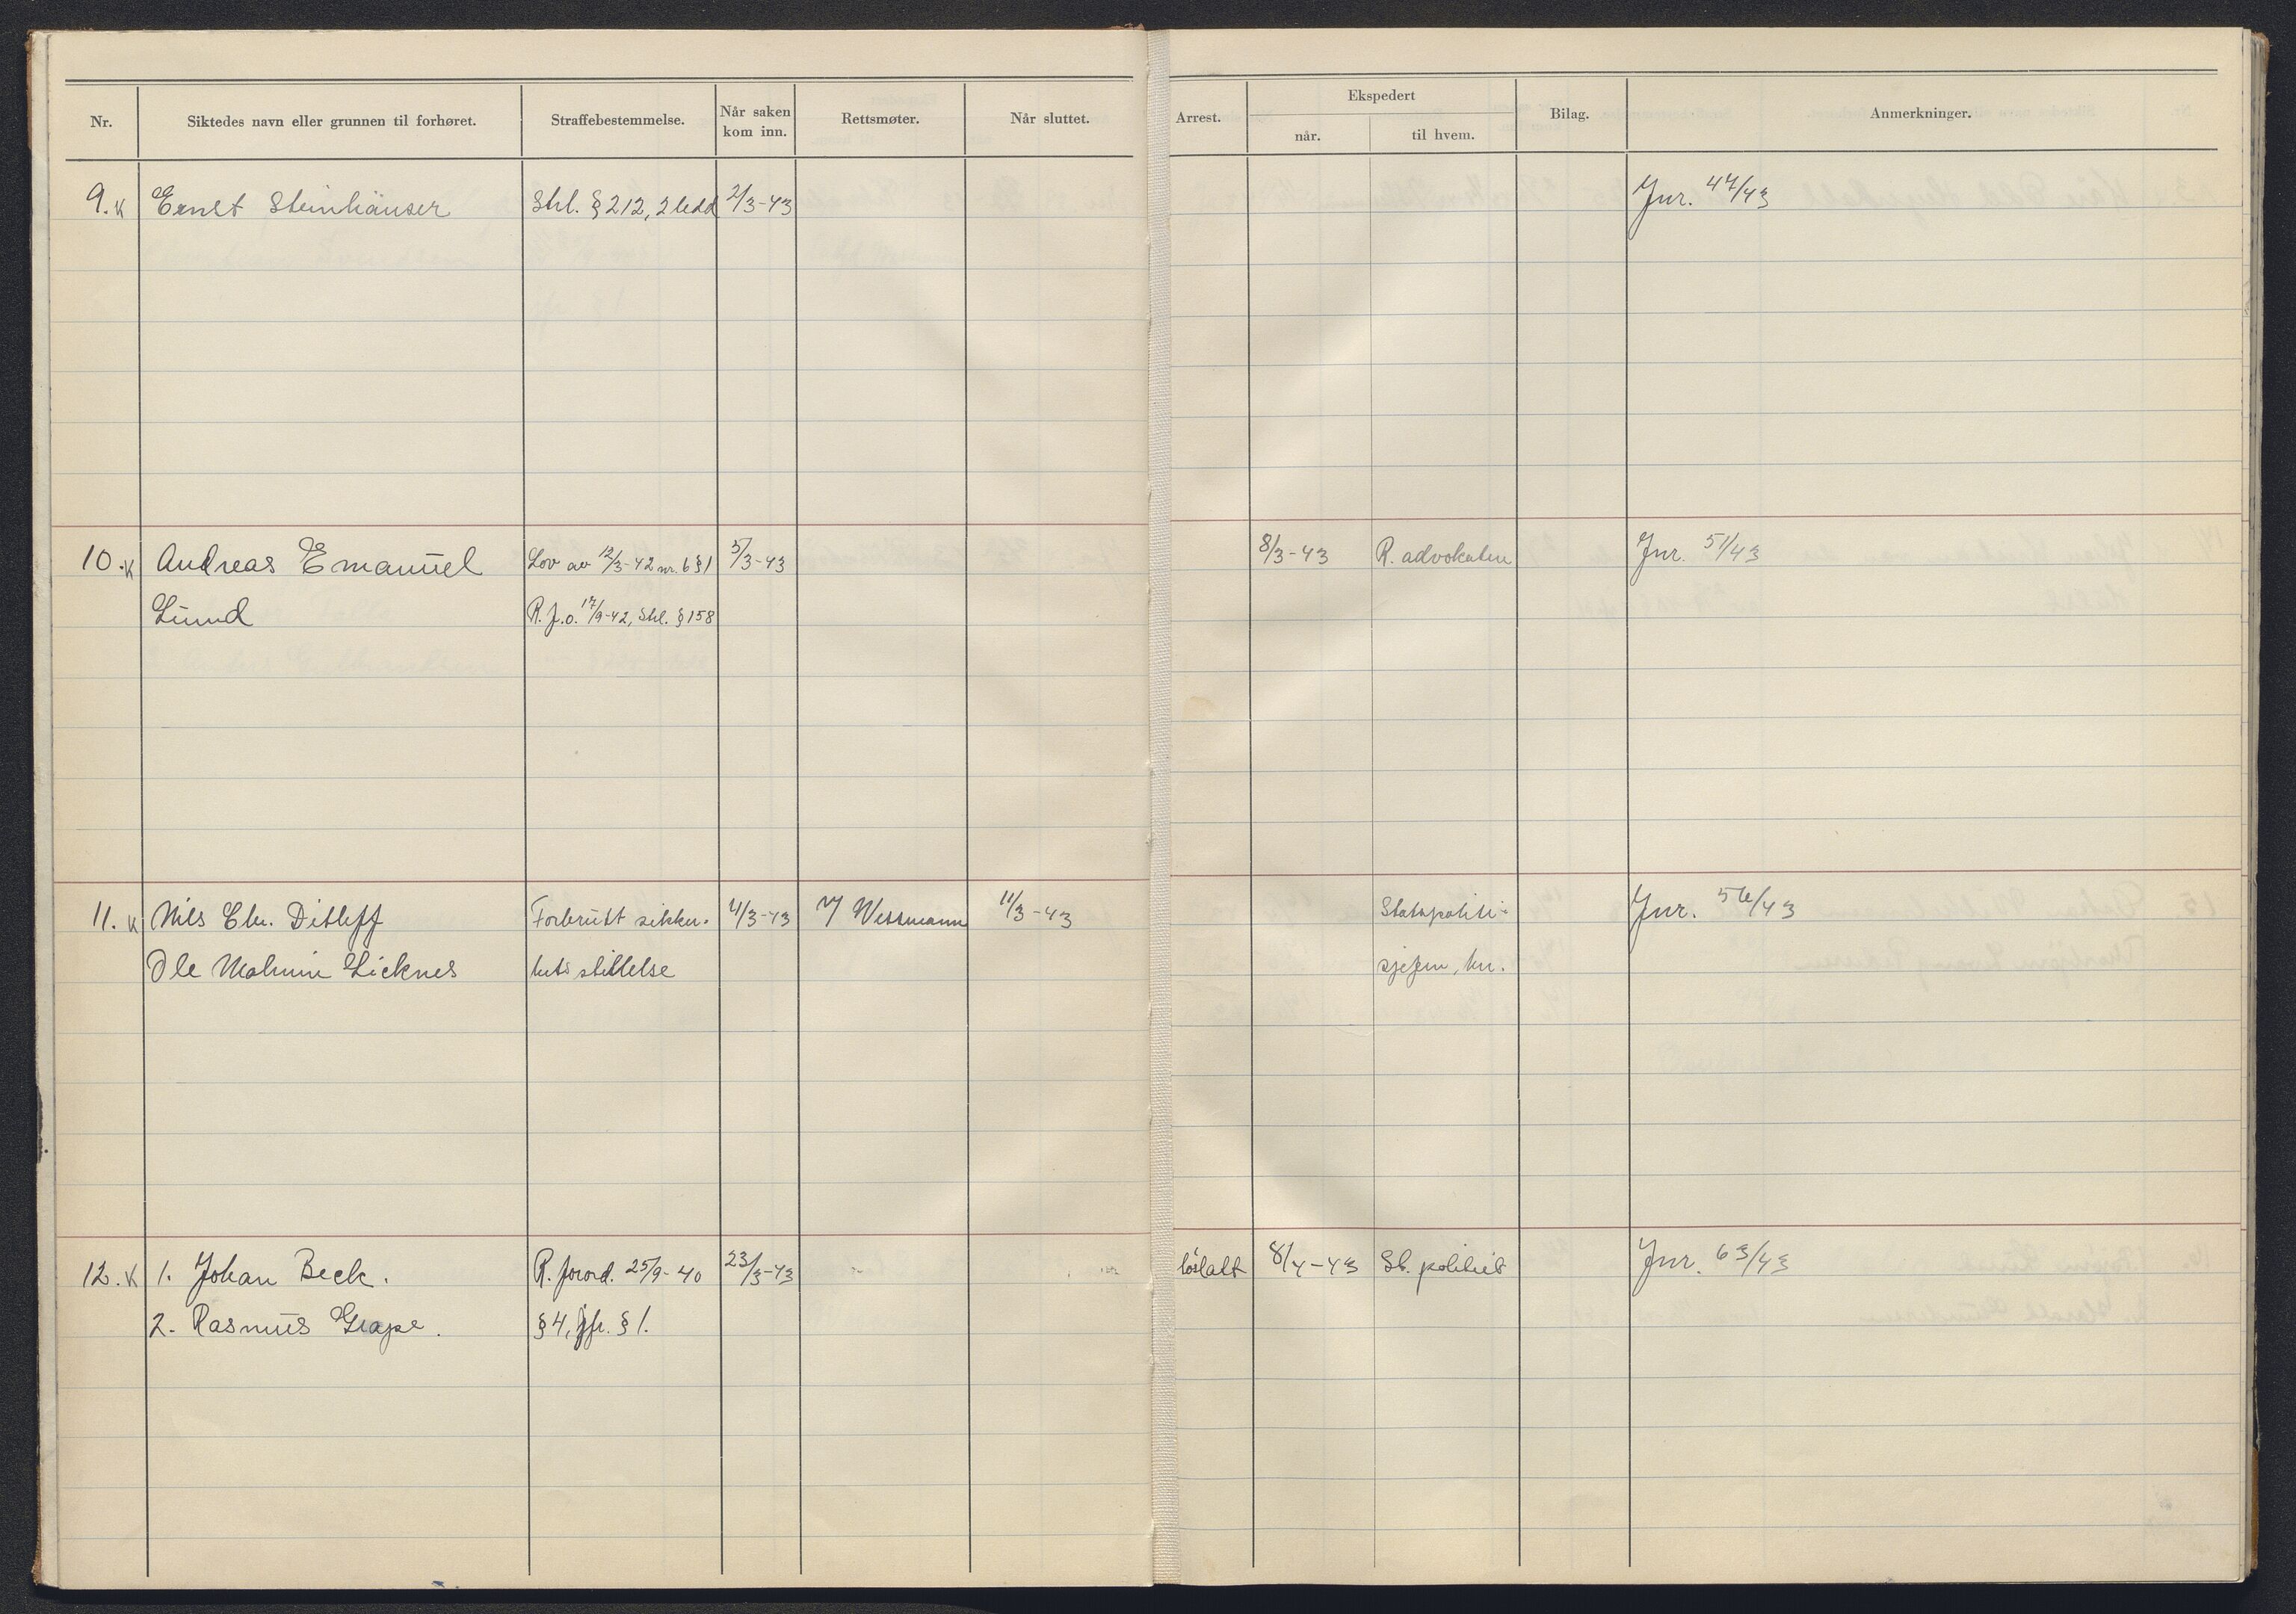 Nr. Siktedes navn eller grunnen til forhøret. Straffebestemmelse. Når saken kom inn. Rettsmøter. Når sluttet. Arrest. Ekspedert når. til hvem. Bilag. Anmerkninger.
9. K Ernst Steinhäuser Strl. § 212, 2 ledd 2/3-43 Jnr. 47/43
10. K Andreas Emanuel Lov av 12/3-42 nr. 6 § 1 5/3-43 8/3-43 R. advokaten Jnr. 51/43
Lund R.f.o. 17/9-42, Strl. § 158
11. K Nils Chr. Ditleff Forbrutt sikker- 11/3-43 Wessmann 11/3-43 Statspoliti- Jnr. 56/43
Ole Malmin Licknes hets stillelse sjefen, her.
12. K 1. Johan Beck. R. forord. 25/9-40 23/3-43 löslatt 8/4-43 St. politiet Jnr. 63/43
2. Rasmus Grape. § 4, jfr. § 1.